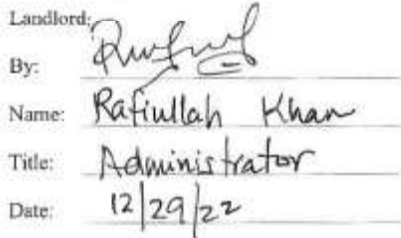 Landlord:
By:
Name: Rafiullah Khan
Title: Administrator
Date: 12/29/22